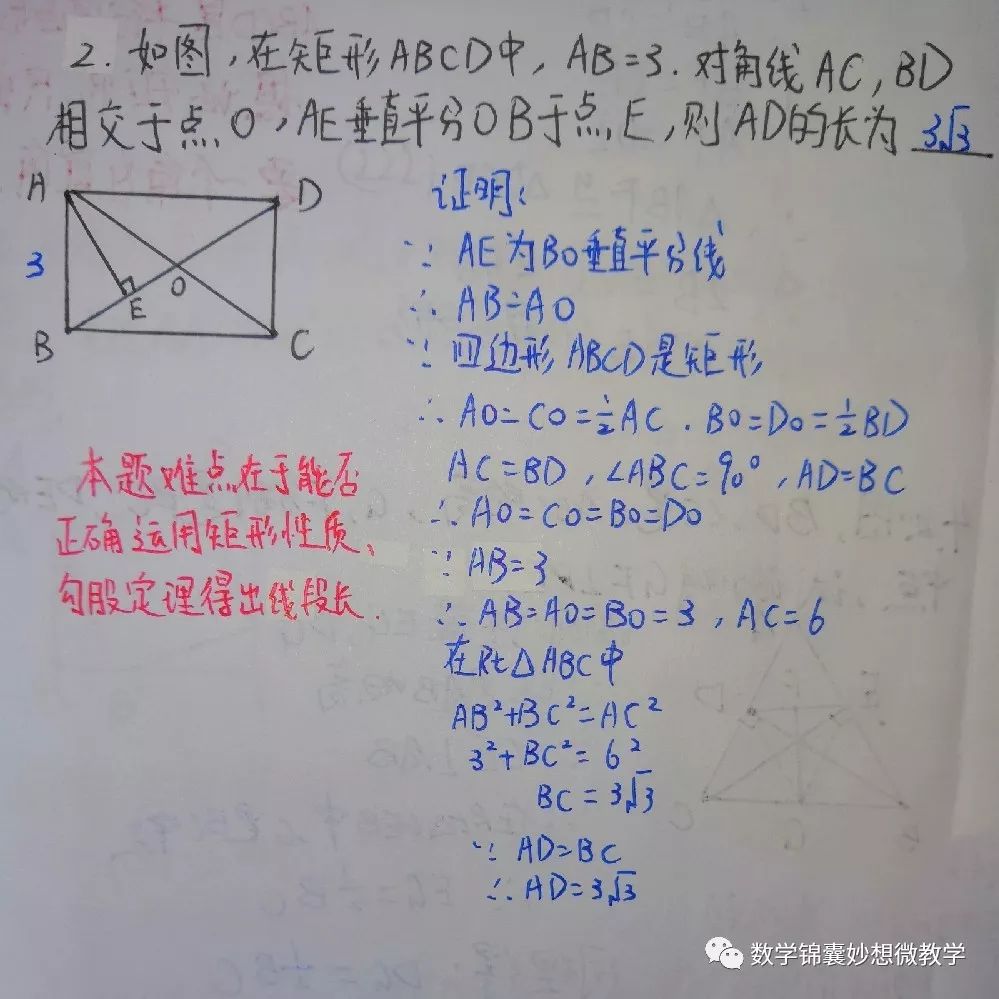 2. 如图,在矩形ABCD中, AB=3. 对角线AC, BD
相交于点O, AE垂直平分OB于点E,则AD的长为 3√3
A
D
3
E
O
B
C
证明:
∵ AE为BO垂直平分线
∴ AB=AO
∵ 四边形ABCD是矩形
∴ AO=CO=½AC . BO=DO=½BD
AC=BD, ∠ABC=90°, AD=BC
∴ AO=CO=BO=DO
∵ AB=3
∴ AB=AO=BO=3, AC=6
在Rt△ABC中
AB²+BC²=AC²
3²+BC²=6²
BC=3√3
∵ AD=BC
∴ AD=3√3
本题难点在于能否
正确运用矩形性质、
勾股定理得出线段长.
数学锦囊妙想微教学